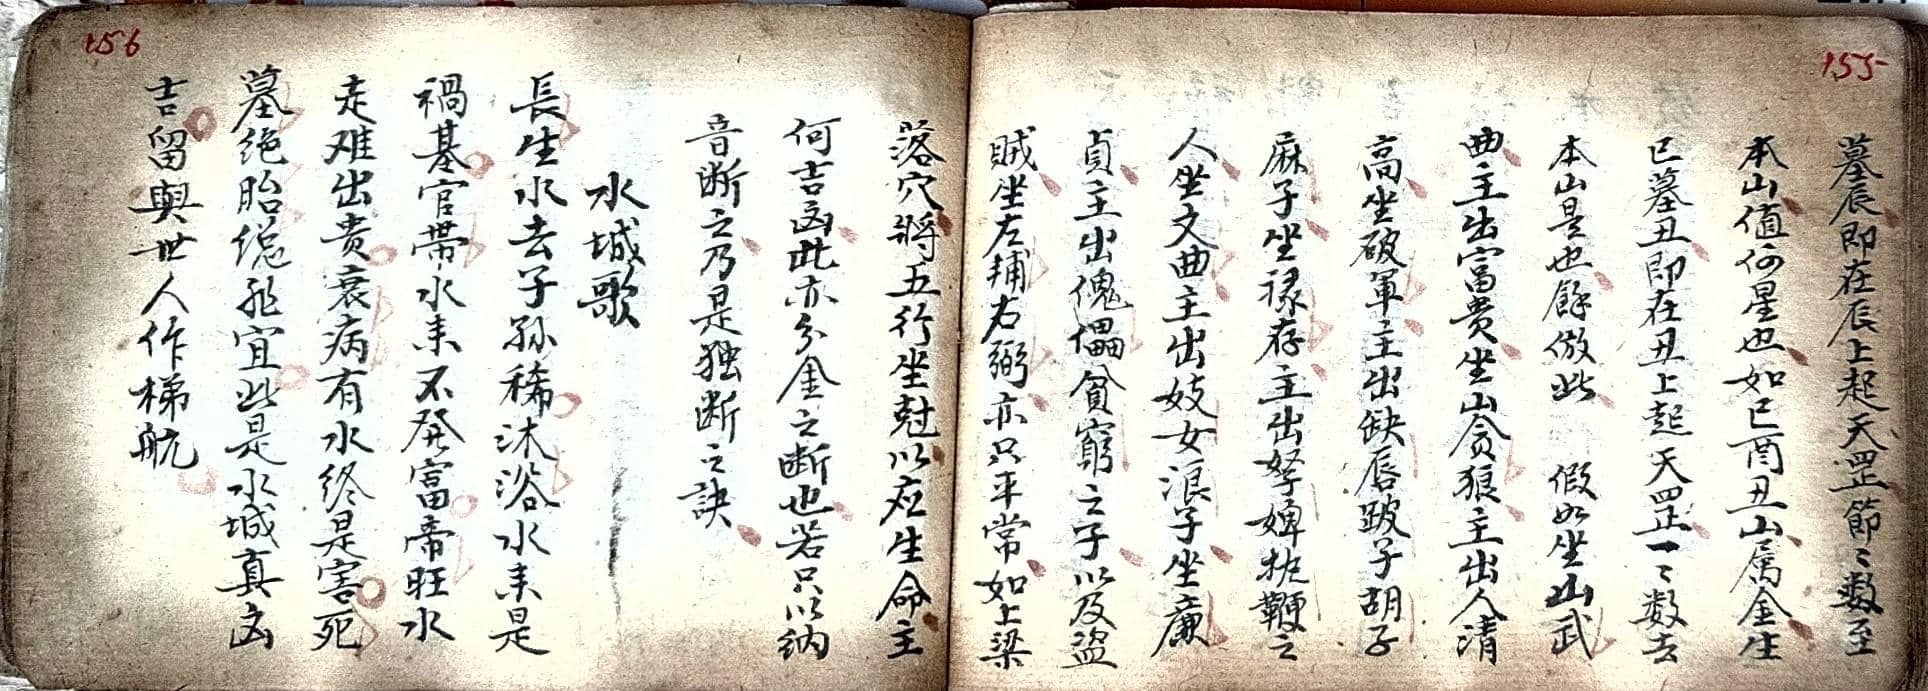 155
墓辰即在辰上起天罡節〻数至
本山值何星也如巳酉丑山属金生
巳墓丑即在丑上起天罡一〻数去
本山是也餘倣此 假如坐山武
曲主出富贵坐山贪狼主出人清
高坐破軍主出缺唇跛子胡子
麻子坐禄存主出孥婢执鞭之
人坐文曲主出妓女浪子坐廉
貞主出傀儡貧窮之子以及盜
賊坐左輔右弼亦只平常如上梁
落穴將五行坐尅以应生命主
何吉凶此亦分金之断也若只以纳
音断之乃是独断之訣
水城歌
156
長生水去子孫稀沐浴水来是
禍基官帶水来不発富帝旺水
走难出贵衰病有水终是害死
墓绝胎総非宜此是水城真凶
吉留與世人作梯航